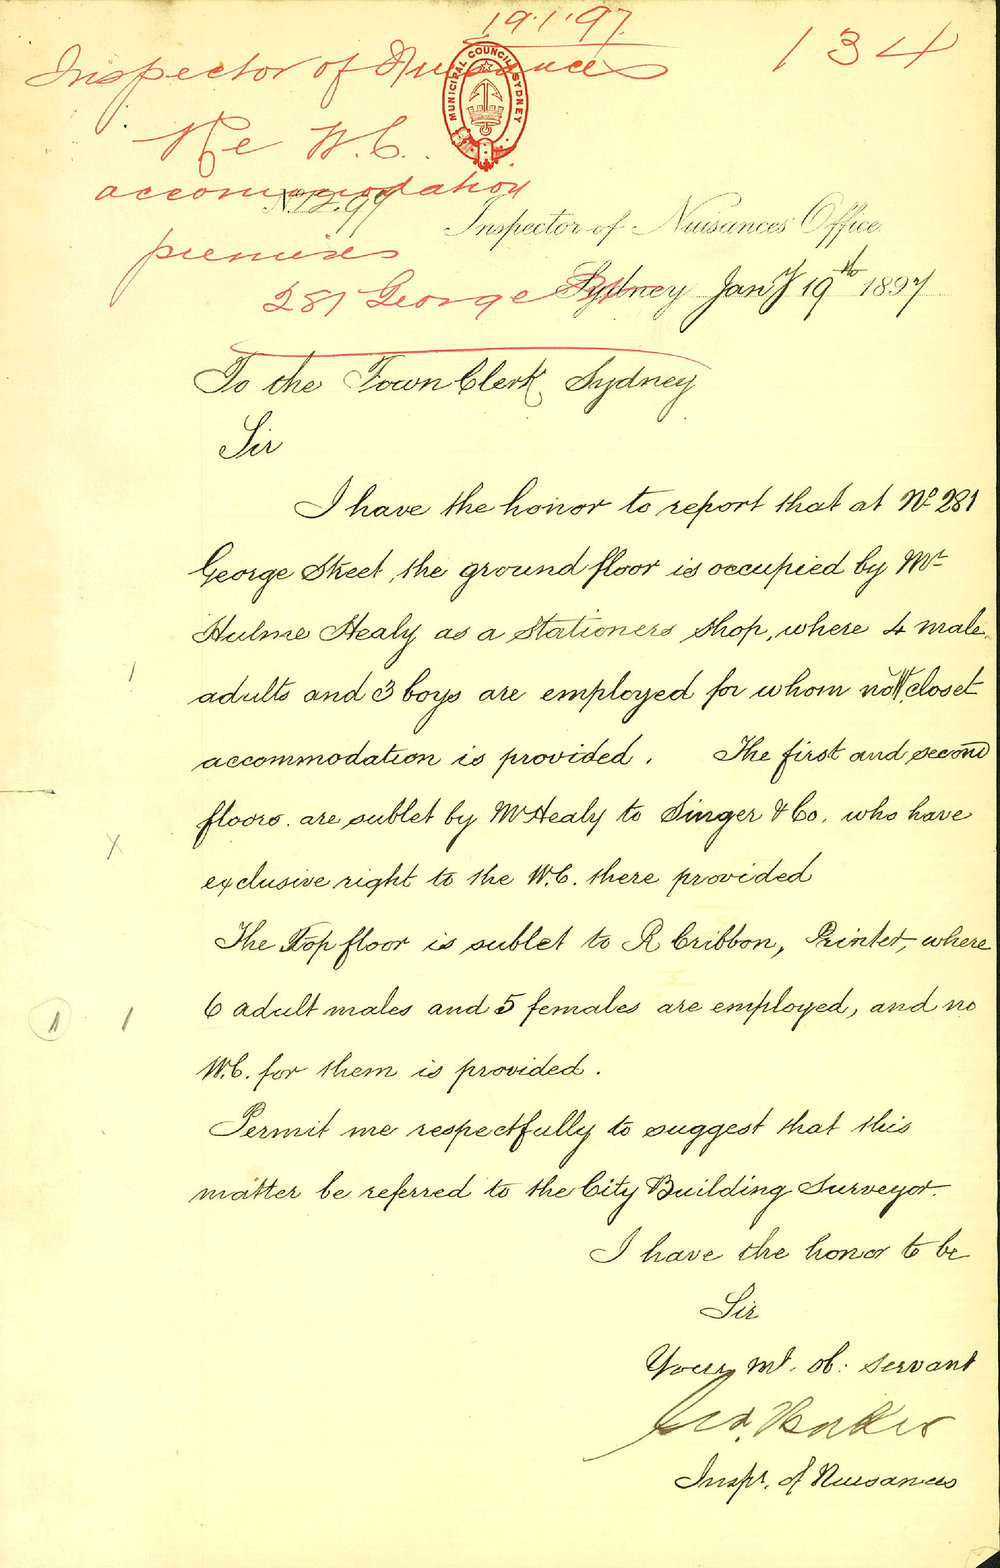 19.1.97.
134
Inspector of Nuisances
MUNICIPAL COUNCIL SYDNEY
Re W.C.
accommodation
No. 12.97
Inspector of Nuisances Office.
premises
281 George St
Sydney Jany 19th 1897
To the Town Clerk Sydney
Sir
I have the honor to report that at No 281
George Street, the ground floor is occupied by Mr
Hulme Healy as a stationers shop, where 4 male
adults and 3 boys are employed for whom no W. closet
accommodation is provided. The first and second
floors. are sublet by Mr Healy to Singer & Co. who have
exclusive right to the W.C. there provided
The Top floor is sublet to R Cribbon, Printer, where
6 adult males and 5 females are employed, and no
W.C. for them is provided.
Permit me respectfully to suggest that this
matter be referred to the City Building Surveyor.
I have the honor to be
Sir
Your mt. ob: servant
Inspr. of Nuisances